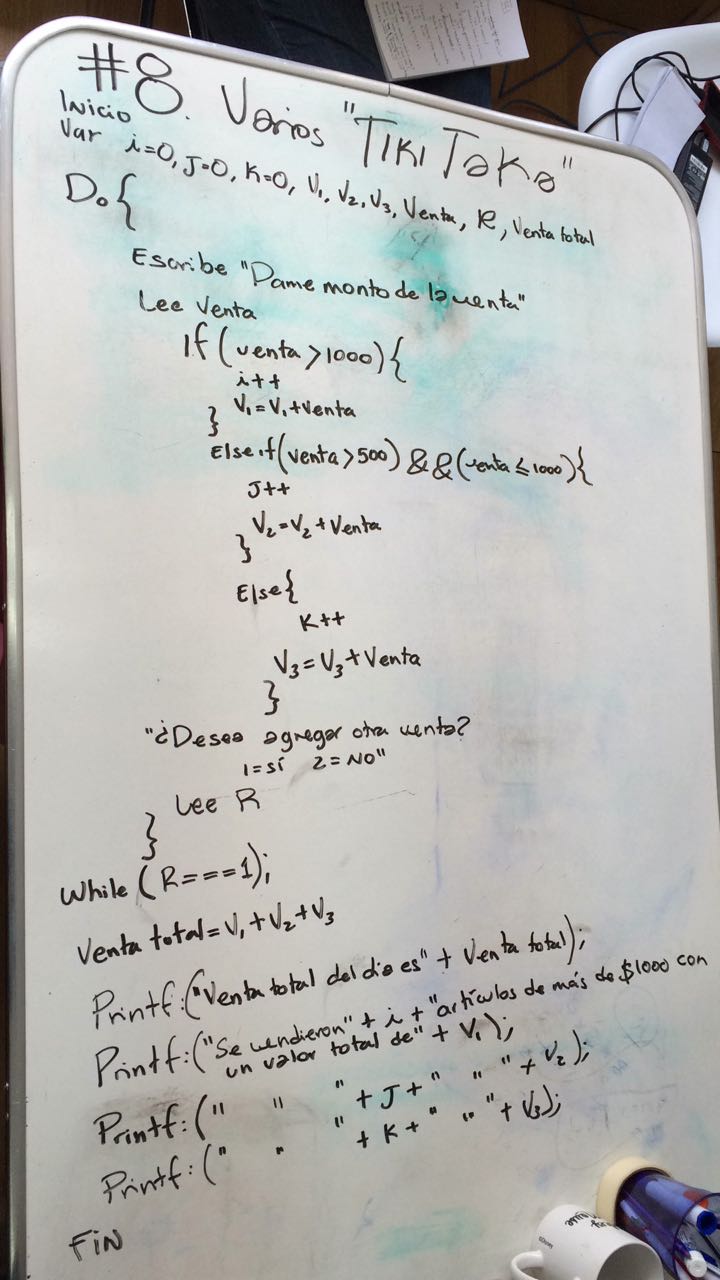 #8. Varios "Tiki Taka"
Inicio
Var i=0, J=0, K=0, V1, V2, V3, Venta, R, Venta total
Do{
Escribe "Dame monto de la venta"
Lee Venta
If (venta > 1000){
i++
V1=V1+Venta
}
Else if (venta > 500) && (venta ≤ 1000){
J++
V2=V2+Venta
}
Else{
K++
V3=V3+Venta
}
"¿Desea agregar otra venta?
1=sí 2=NO"
Lee R
}
While (R===1);
Venta total=V1+V2+V3
Printf:("Venta total del dia es" + Venta total);
Printf:("Se vendieron" + i + "artículos de más de $1000 con
un valor total de" + V1);
Printf:(" " " + J + " " " + V2);
Printf:(" " " + K + " " " + V3);
FIN